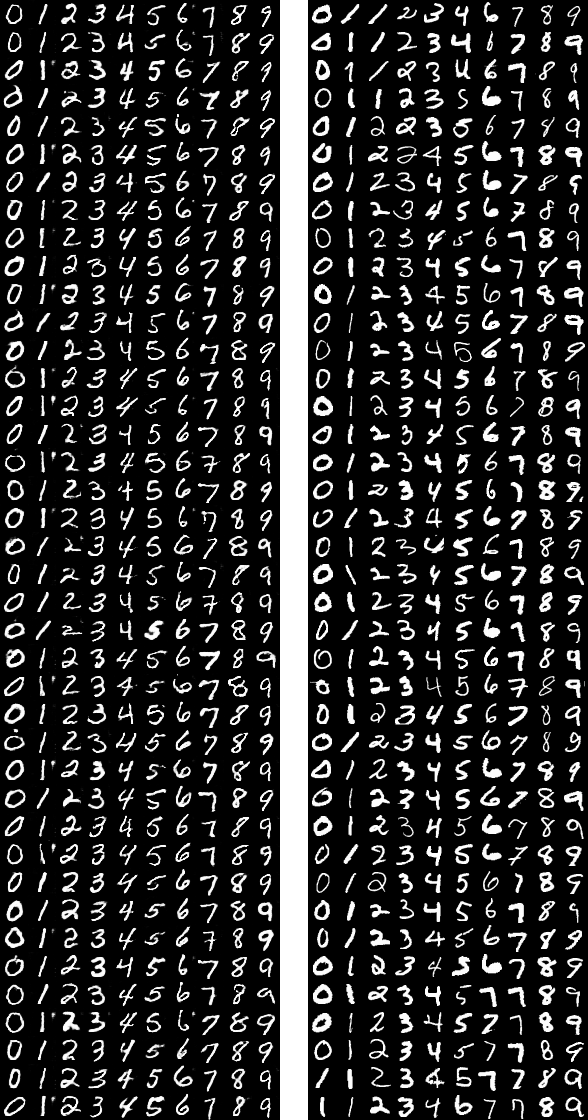 0 1 2 3 4 5 6 7 8 9 0 1 1 2 3 4 6 7 8 9
0 1 2 3 4 5 6 7 8 9 0 1 1 2 3 4 6 7 8 9
0 1 2 3 4 5 6 7 8 9 0 1 1 2 3 4 6 7 8 9
0 1 2 3 4 5 6 7 8 9 0 1 1 2 3 5 6 7 8 9
0 1 2 3 4 5 6 7 8 9 0 1 2 2 3 5 6 7 8 9
0 1 2 3 4 5 6 7 8 9 0 1 2 2 4 5 6 7 8 9
0 1 2 3 4 5 6 7 8 9 0 1 2 3 4 5 6 7 8 9
0 1 2 3 4 5 6 7 8 9 0 1 2 3 4 5 6 7 8 9
0 1 2 3 4 5 6 7 8 9 0 1 2 3 4 5 6 7 8 9
0 1 2 3 4 5 6 7 8 9 0 1 2 3 4 5 6 7 8 9
0 1 2 3 4 5 6 7 8 9 0 1 2 3 4 5 6 7 8 9
0 1 2 3 4 5 6 7 8 9 0 1 2 3 4 5 6 7 8 9
0 1 2 3 4 5 6 7 8 9 0 1 2 3 4 5 6 7 8 9
0 1 2 3 4 5 6 7 8 9 0 1 2 3 4 5 6 7 8 9
0 1 2 3 4 5 6 7 8 9 0 1 2 3 4 5 6 7 8 9
0 1 2 3 4 5 6 7 8 9 0 1 2 3 4 5 6 7 8 9
0 1 2 3 4 5 6 7 8 9 0 1 2 3 4 5 6 7 8 9
0 1 2 3 4 5 6 7 8 9 0 1 2 3 4 5 6 7 8 9
0 1 2 3 4 5 6 7 8 9 0 1 2 3 4 5 6 7 8 9
0 1 2 3 4 5 6 7 8 9 0 1 2 3 4 5 6 7 8 9
0 1 2 3 4 5 6 7 8 9 0 1 2 3 4 5 6 7 8 9
0 1 2 3 4 5 6 7 8 9 0 1 2 3 4 5 6 7 8 9
0 1 2 3 4 5 6 7 8 9 0 1 2 3 4 5 6 7 8 9
0 1 2 3 4 5 6 7 8 9 0 1 2 3 4 5 6 7 8 9
0 1 2 3 4 5 6 7 8 9 0 1 2 3 4 5 6 7 8 9
0 1 2 3 4 5 6 7 8 9 0 1 2 3 4 5 6 7 8 9
0 1 2 3 4 5 6 7 8 9 0 1 2 3 4 5 6 7 8 9
0 1 2 3 4 5 6 7 8 9 0 1 2 3 4 5 6 7 8 9
0 1 2 3 4 5 6 7 8 9 0 1 2 3 4 5 6 7 8 9
0 1 2 3 4 5 6 7 8 9 0 1 2 3 4 5 6 7 8 9
0 1 2 3 4 5 6 7 8 9 0 1 2 3 4 5 6 7 8 9
0 1 2 3 4 5 6 7 8 9 0 1 2 3 4 5 6 7 8 9
0 1 2 3 4 5 6 7 8 9 0 1 2 3 4 5 6 7 8 9
0 1 2 3 4 5 6 7 8 9 0 1 2 3 4 5 6 7 8 9
0 1 2 3 4 5 6 7 8 9 0 1 2 3 4 5 6 7 8 9
0 1 2 3 4 5 6 7 8 9 0 1 2 3 4 5 7 7 8 9
0 1 2 3 4 5 6 7 8 9 0 1 2 3 4 5 7 7 8 9
0 1 2 3 4 5 6 7 8 9 0 1 2 3 4 5 7 7 8 9
0 1 2 3 4 5 6 7 8 9 1 1 2 3 4 5 7 7 8 9
0 1 2 3 4 5 6 7 8 9 1 1 2 3 4 6 7 7 8 9